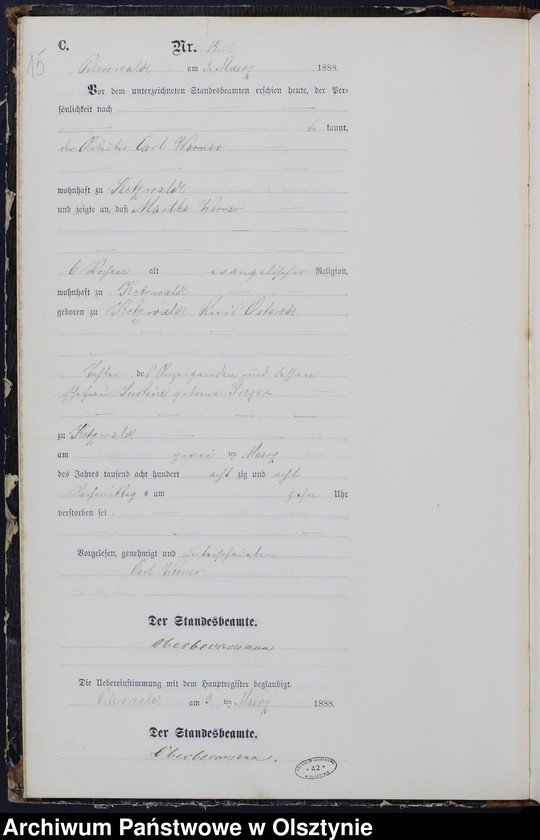 15
C.
Nr. 14
Peterswalde am 3. Maerz 1888.
Vor dem unterzeichneten Standesbeamten erschien heute, der Per-
sönlichkeit nach
be kannt,
der Arbeiter Carl Werner
wohnhaft zu Ketzwalde
und zeigte an, daß Martha Werner
6 Wochen alt evangelischer Religion,
wohnhaft zu Ketzwalde
geboren zu Ketzwalde Kreis Osterode
Tochter des Anzeigenden und dessen
Ehefrau geborene
zu Ketzwalde
am zwei ten Maerz
des Jahres tausend acht hundert acht zig und acht
Nachmittag s um zehn Uhr
verstorben sei.
Vorgelesen, genehmigt und unterschrieben
Carl Werner
Der Standesbeamte.
Die Uebereinstimmung mit dem Hauptregister beglaubigt.
Peterswalde am 3 ten Maerz 1888.
Der Standesbeamte.
42
Archiwum Państwowe w Olsztynie